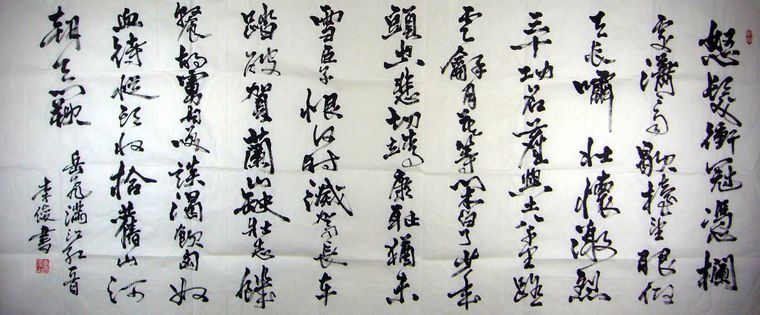 怒髮衝冠憑欄
處瀟瀟雨歇抬望眼仰
天長嘯壯懷激烈
三十功名塵與土八千里路
雲龢月莫等閒白了少年
頭空悲切靖康恥猶未
雪臣子恨何時滅駕長车
踏破賀蘭山缺壯志飢
餐胡虜肉笑談渴飲匈奴
血待從頭收拾舊山河
朝天闕
岳飛滿江紅
李俊書